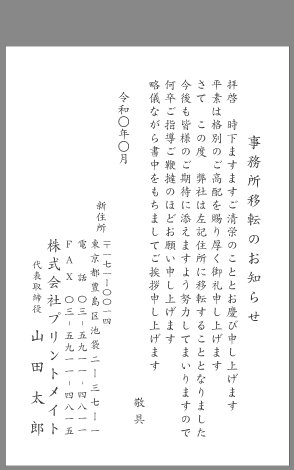 事務所移転のお知らせ
拝啓　時下ますますご清栄のこととお慶び申し上げます
平素は格別のご高配を賜り厚く御礼申し上げます
さて　この度　弊社は左記住所に移転することとなりました
今後も皆様のご期待に添えますよう努力してまいりますので
何卒ご指導ご鞭撻のほどお願い申し上げます
略儀ながら書中をもちましてご挨拶申し上げます
敬具
令和〇年〇月
新住所
〒一七一-〇〇一四
東京都豊島区池袋二-三七-一
電話　〇三-五九一一-四八一一
ＦＡＸ　〇三-五九一一-四八一五
株式会社プリントメイト
代表取締役　山田太郎